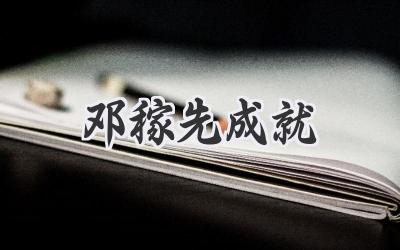 邓稼先成就